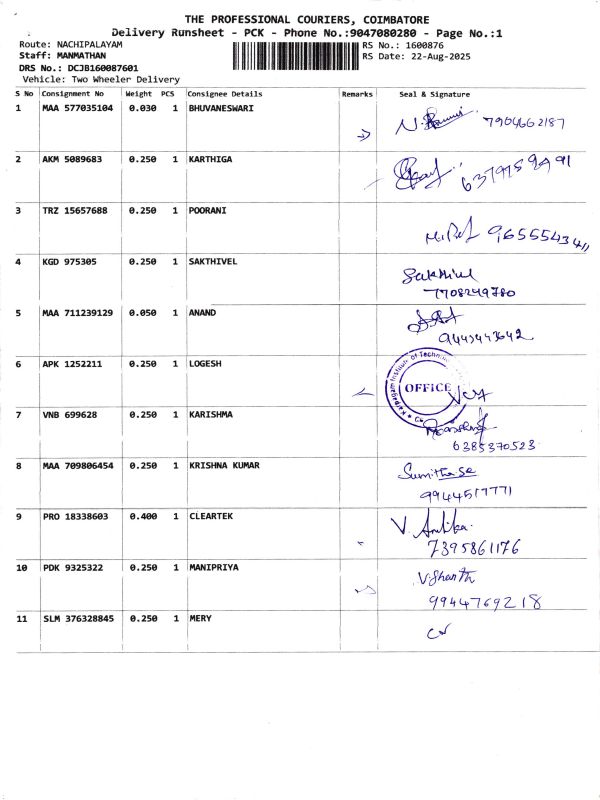 THE PROFESSIONAL COURIERS, COIMBATORE
Delivery Runsheet - PCK - Phone No.:9047080280 - Page No.:1
Route: NACHIPALAYAM RS No.: 1600876
Staff: MANMATHAN RS Date: 22-Aug-2025
DRS No.: DCJB160087601
Vehicle: Two Wheeler Delivery
S No Consignment No Weight PCS Consignee Details Remarks Seal & Signature
1 MAA 577035104 0.030 1 BHUVANESWARI
7904662187
2 AKM 5089683 0.250 1 KARTHIGA
3 TRZ 15657688 0.250 1 POORANI
4 KGD 975305 0.250 1 SAKTHIVEL
Sakthivel
7708249780
5 MAA 711239129 0.050 1 ANAND
6 APK 1252211 0.250 1 LOGESH
Karpagam Institute of Techn
OFFICE
7 VNB 699628 0.250 1 KARISHMA
6385370523
8 MAA 709806454 0.250 1 KRISHNA KUMAR
9944517771
9 PRO 18338603 0.400 1 CLEARTEK
7395861176
10 PDK 9325322 0.250 1 MANIPRIYA
V.Shanth
9944769218
11 SLM 376328845 0.250 1 MERY